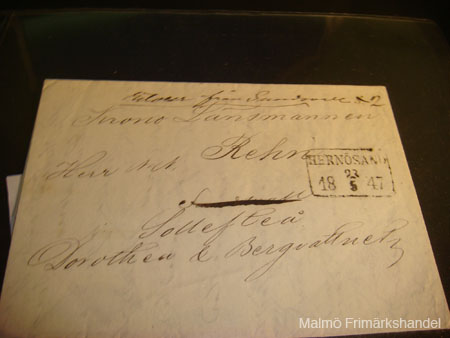 Krono Länsmannen
Herr Rehn
HERNÖSAND
23
18 47
5
Sollefteå
Dorothea & Bergvattnet
Malmö Frimärkshandel